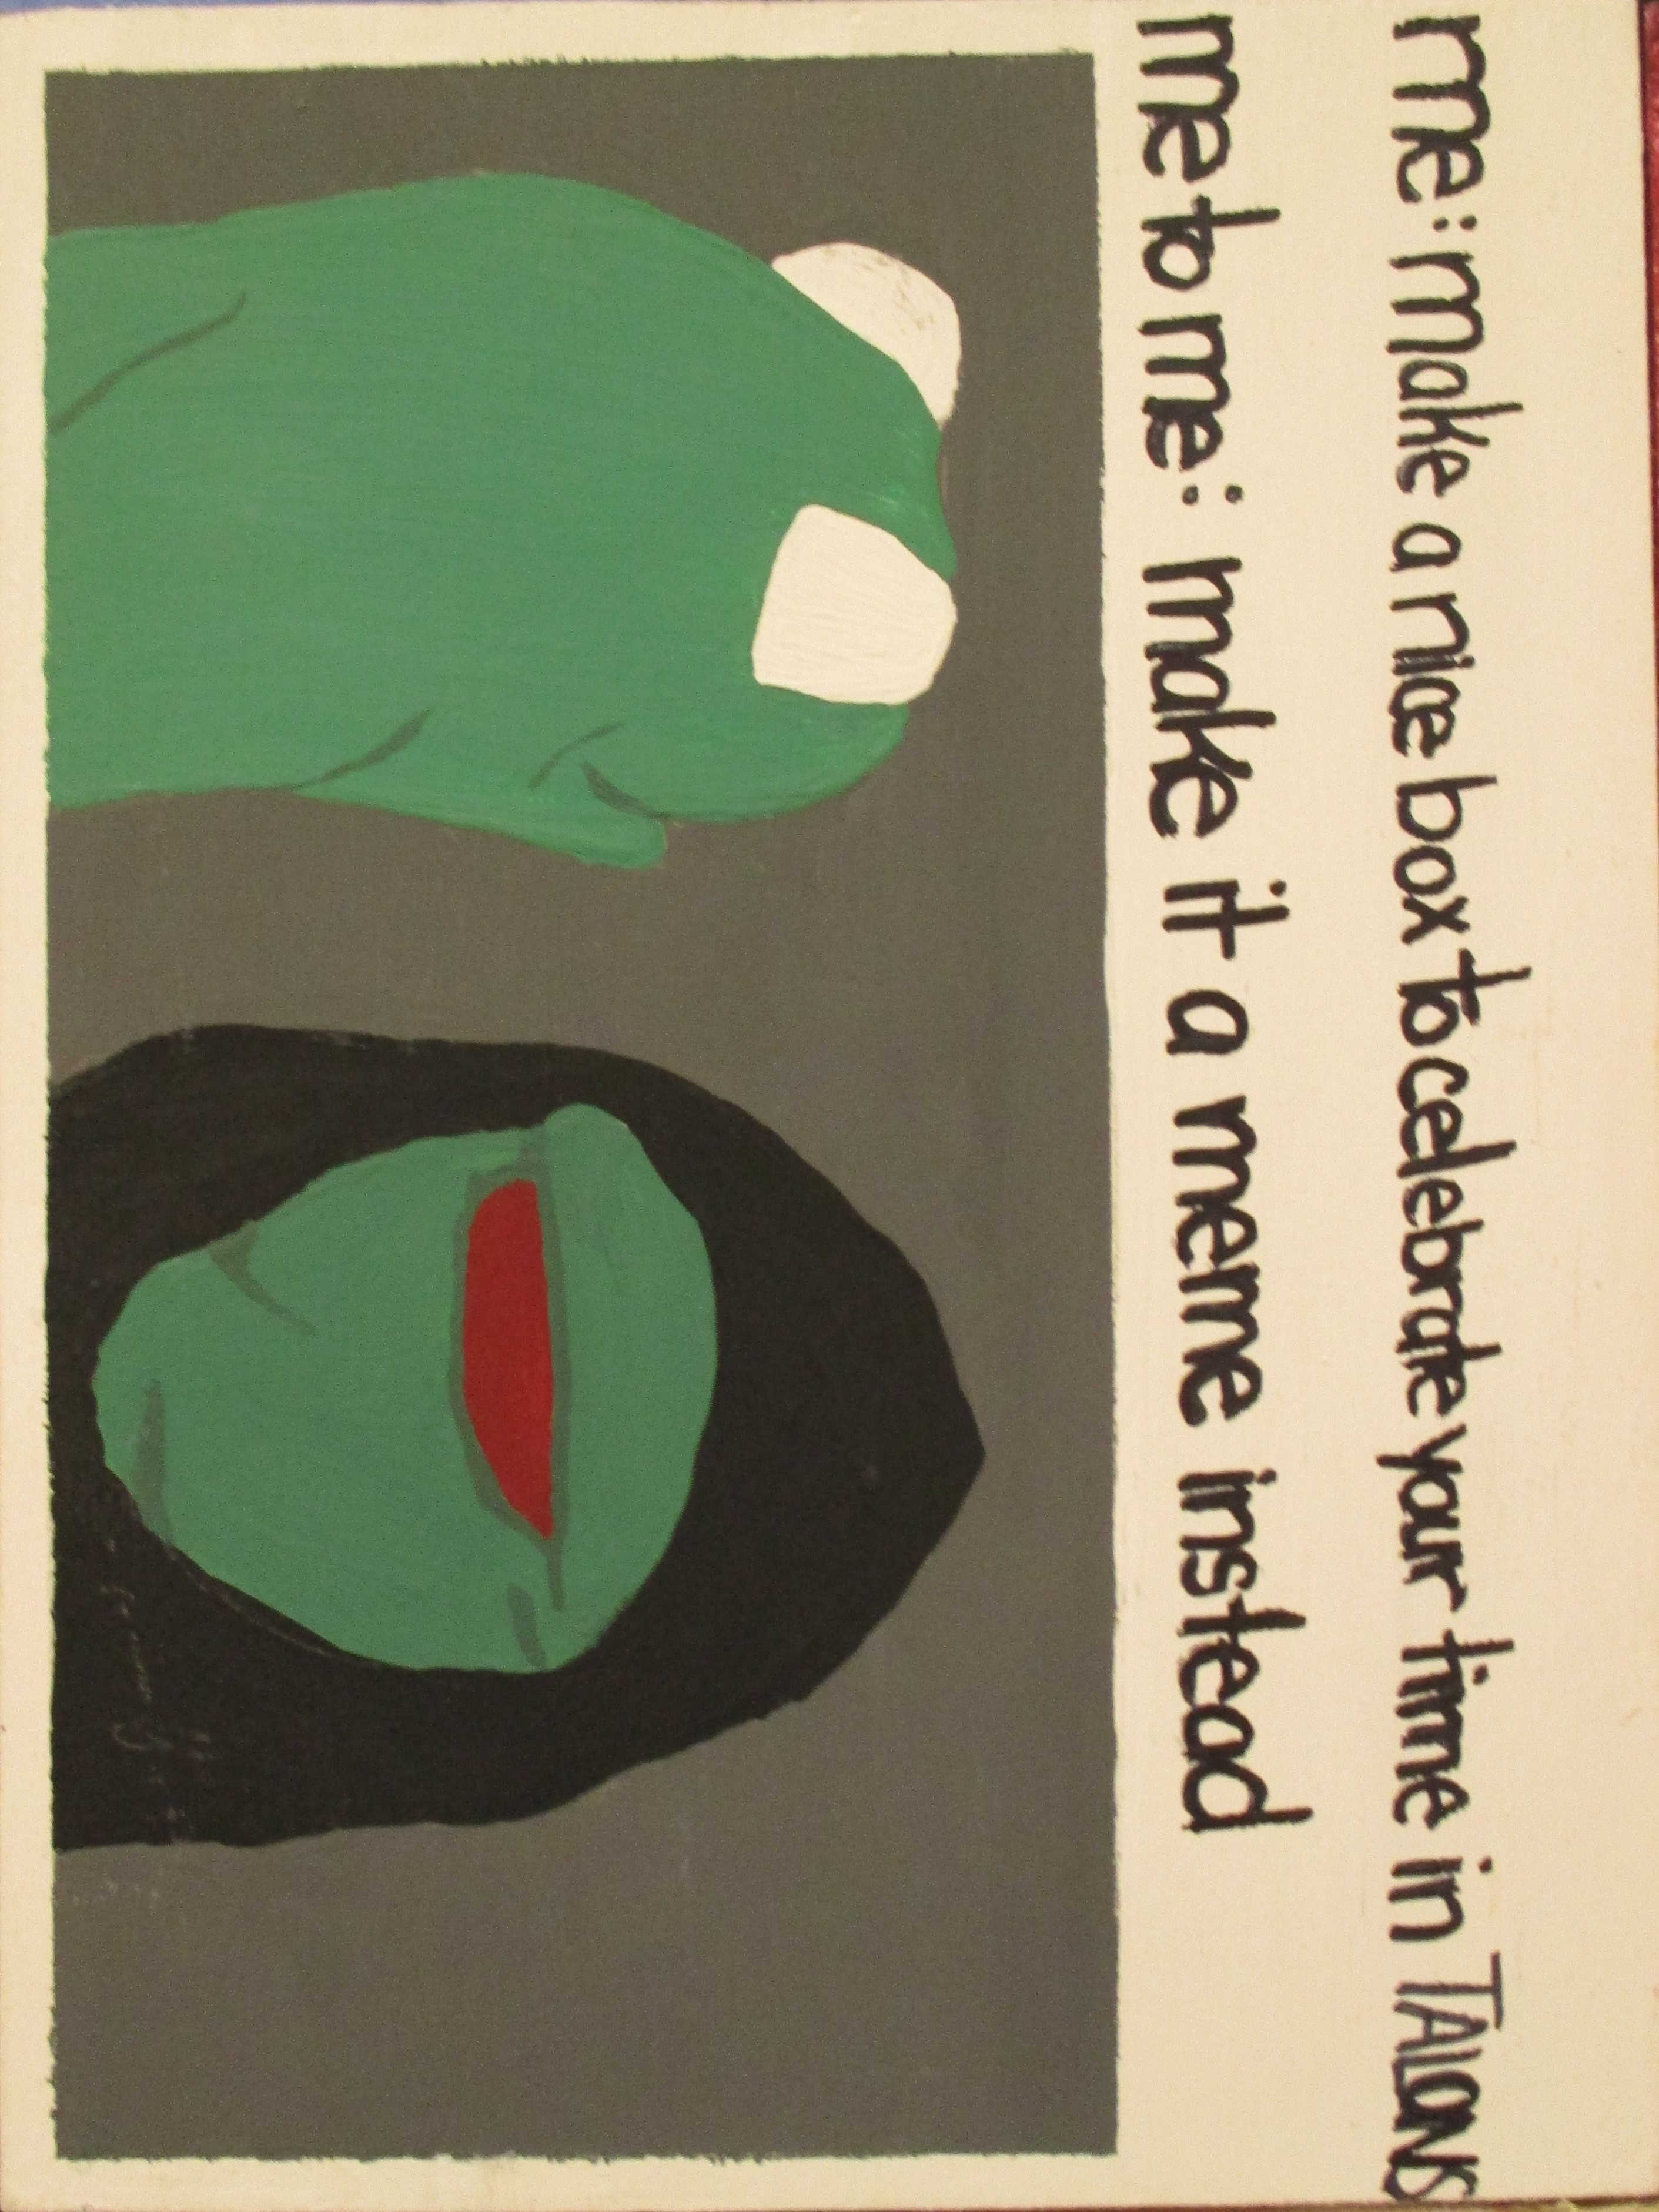 me: make a nice box to celebrate your time in TALONS
me to me: make it a meme instead